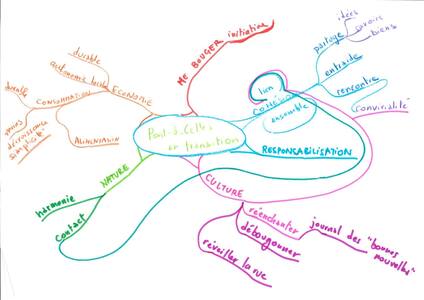 Pont-à-Celles
en transition
ME BOUGER
initiative
lien
COHÉSION
ensemble
partage
idées
savoirs
biens
entraide
rencontre
CONVIVIALITÉ
RESPONSABILISATION
CULTURE
réenchanter
journal des "bonnes
nouvelles"
débougonner
réveiller la rue
NATURE
harmonie
contact
ÉCONOMIE
durable
autonomie locale
CONSOMMATION
durable
moins
décroissance
simplicité
ALIMENTATION